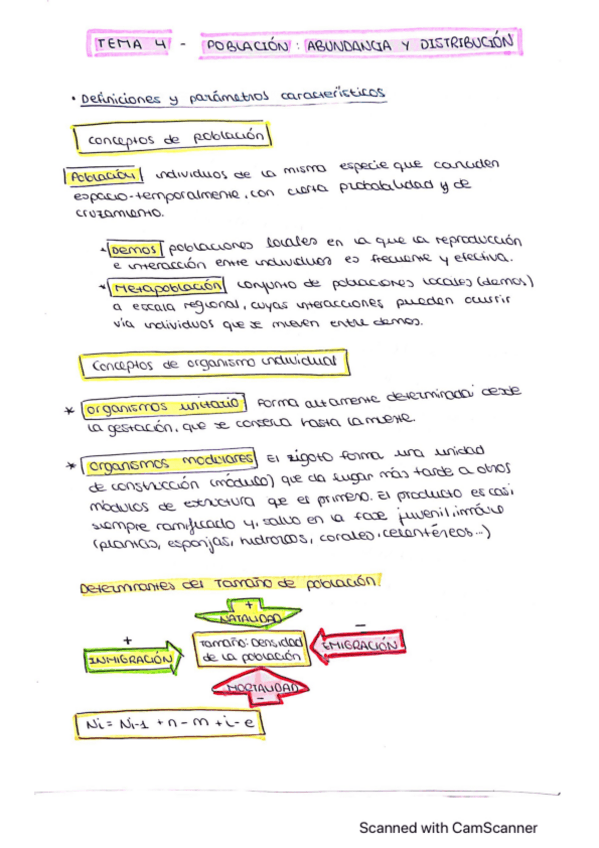 TEMA 4 - POBLACIÓN: ABUNDANCIA Y DISTRIBUCIÓN
· Definiciones y parámetros característicos
conceptos de población
Población individuos de la misma especie que coinciden
espacio-temporalmente, con cierta probabilidad y de
cruzamiento.
Demos poblaciones locales en la que la reproducción
e interacción entre individuos es frecuente y efectiva.
Metapoblación conjunto de poblaciones locales (demos)
a escala regional, cuyas interacciones pueden ocurrir
vía individuos que se mueven entre demos.
Conceptos de organismo individual
* organismos unitario Forma altamente determinada desde
la gestación, que se conserva hasta la muerte.
* organismos modulares El zigoto forma una unidad
de construcción (módulo) que da lugar más tarde a otros
módulos de estructura que es primero. El producto es casi
siempre ramificado y, salvo en la fase juvenil, inmóvil
(plantas, esponjas, hidrozoos, corales, celentéreos...)
Determinantes del Tamaño de población:
+
NATALIDAD
+
INMIGRACIÓN
Tamaño: Densidad
de la población
-
EMIGRACIÓN
MORTALIDAD
-
Ni = Ni-1 + n - m + i - e
Scanned with CamScanner